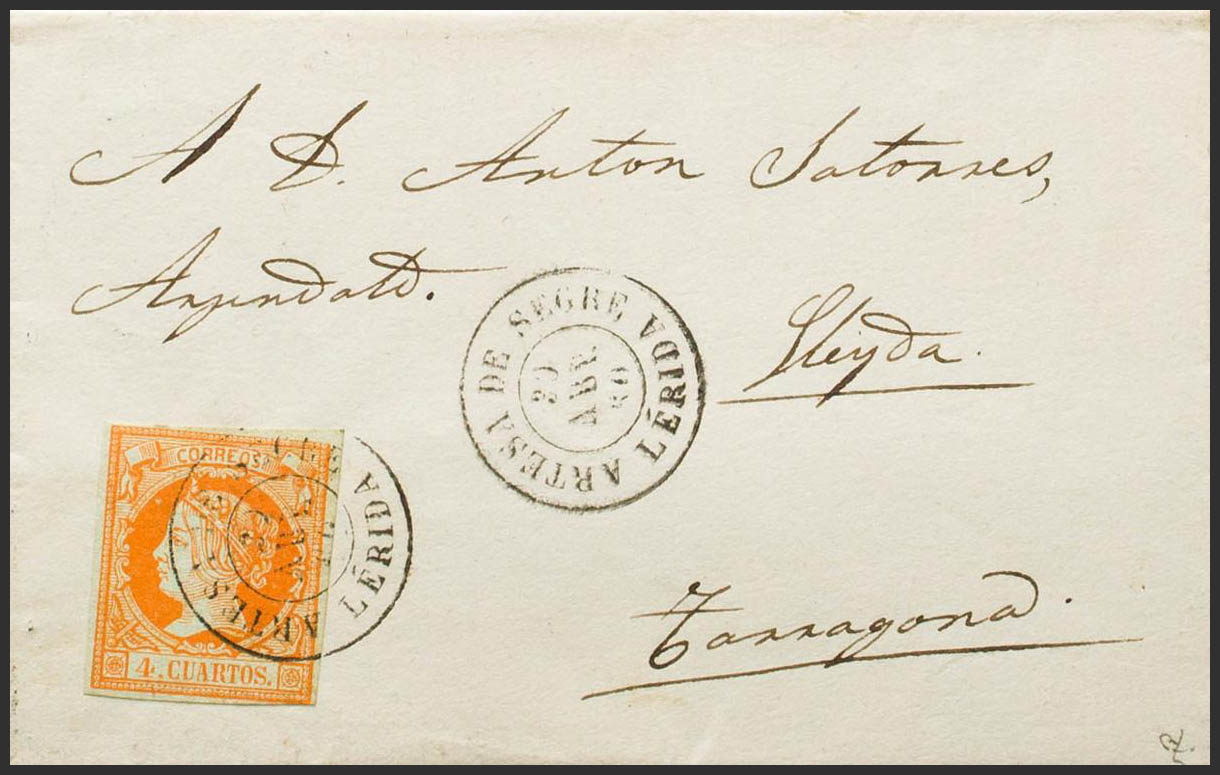 A D. Anton Satorres,
Lleyda.
Tarragona.
ARTESA DE SEGRE LÉRIDA
ABR.
60
CORREOS
4 CUARTOS.
ARTES
LÉRIDA